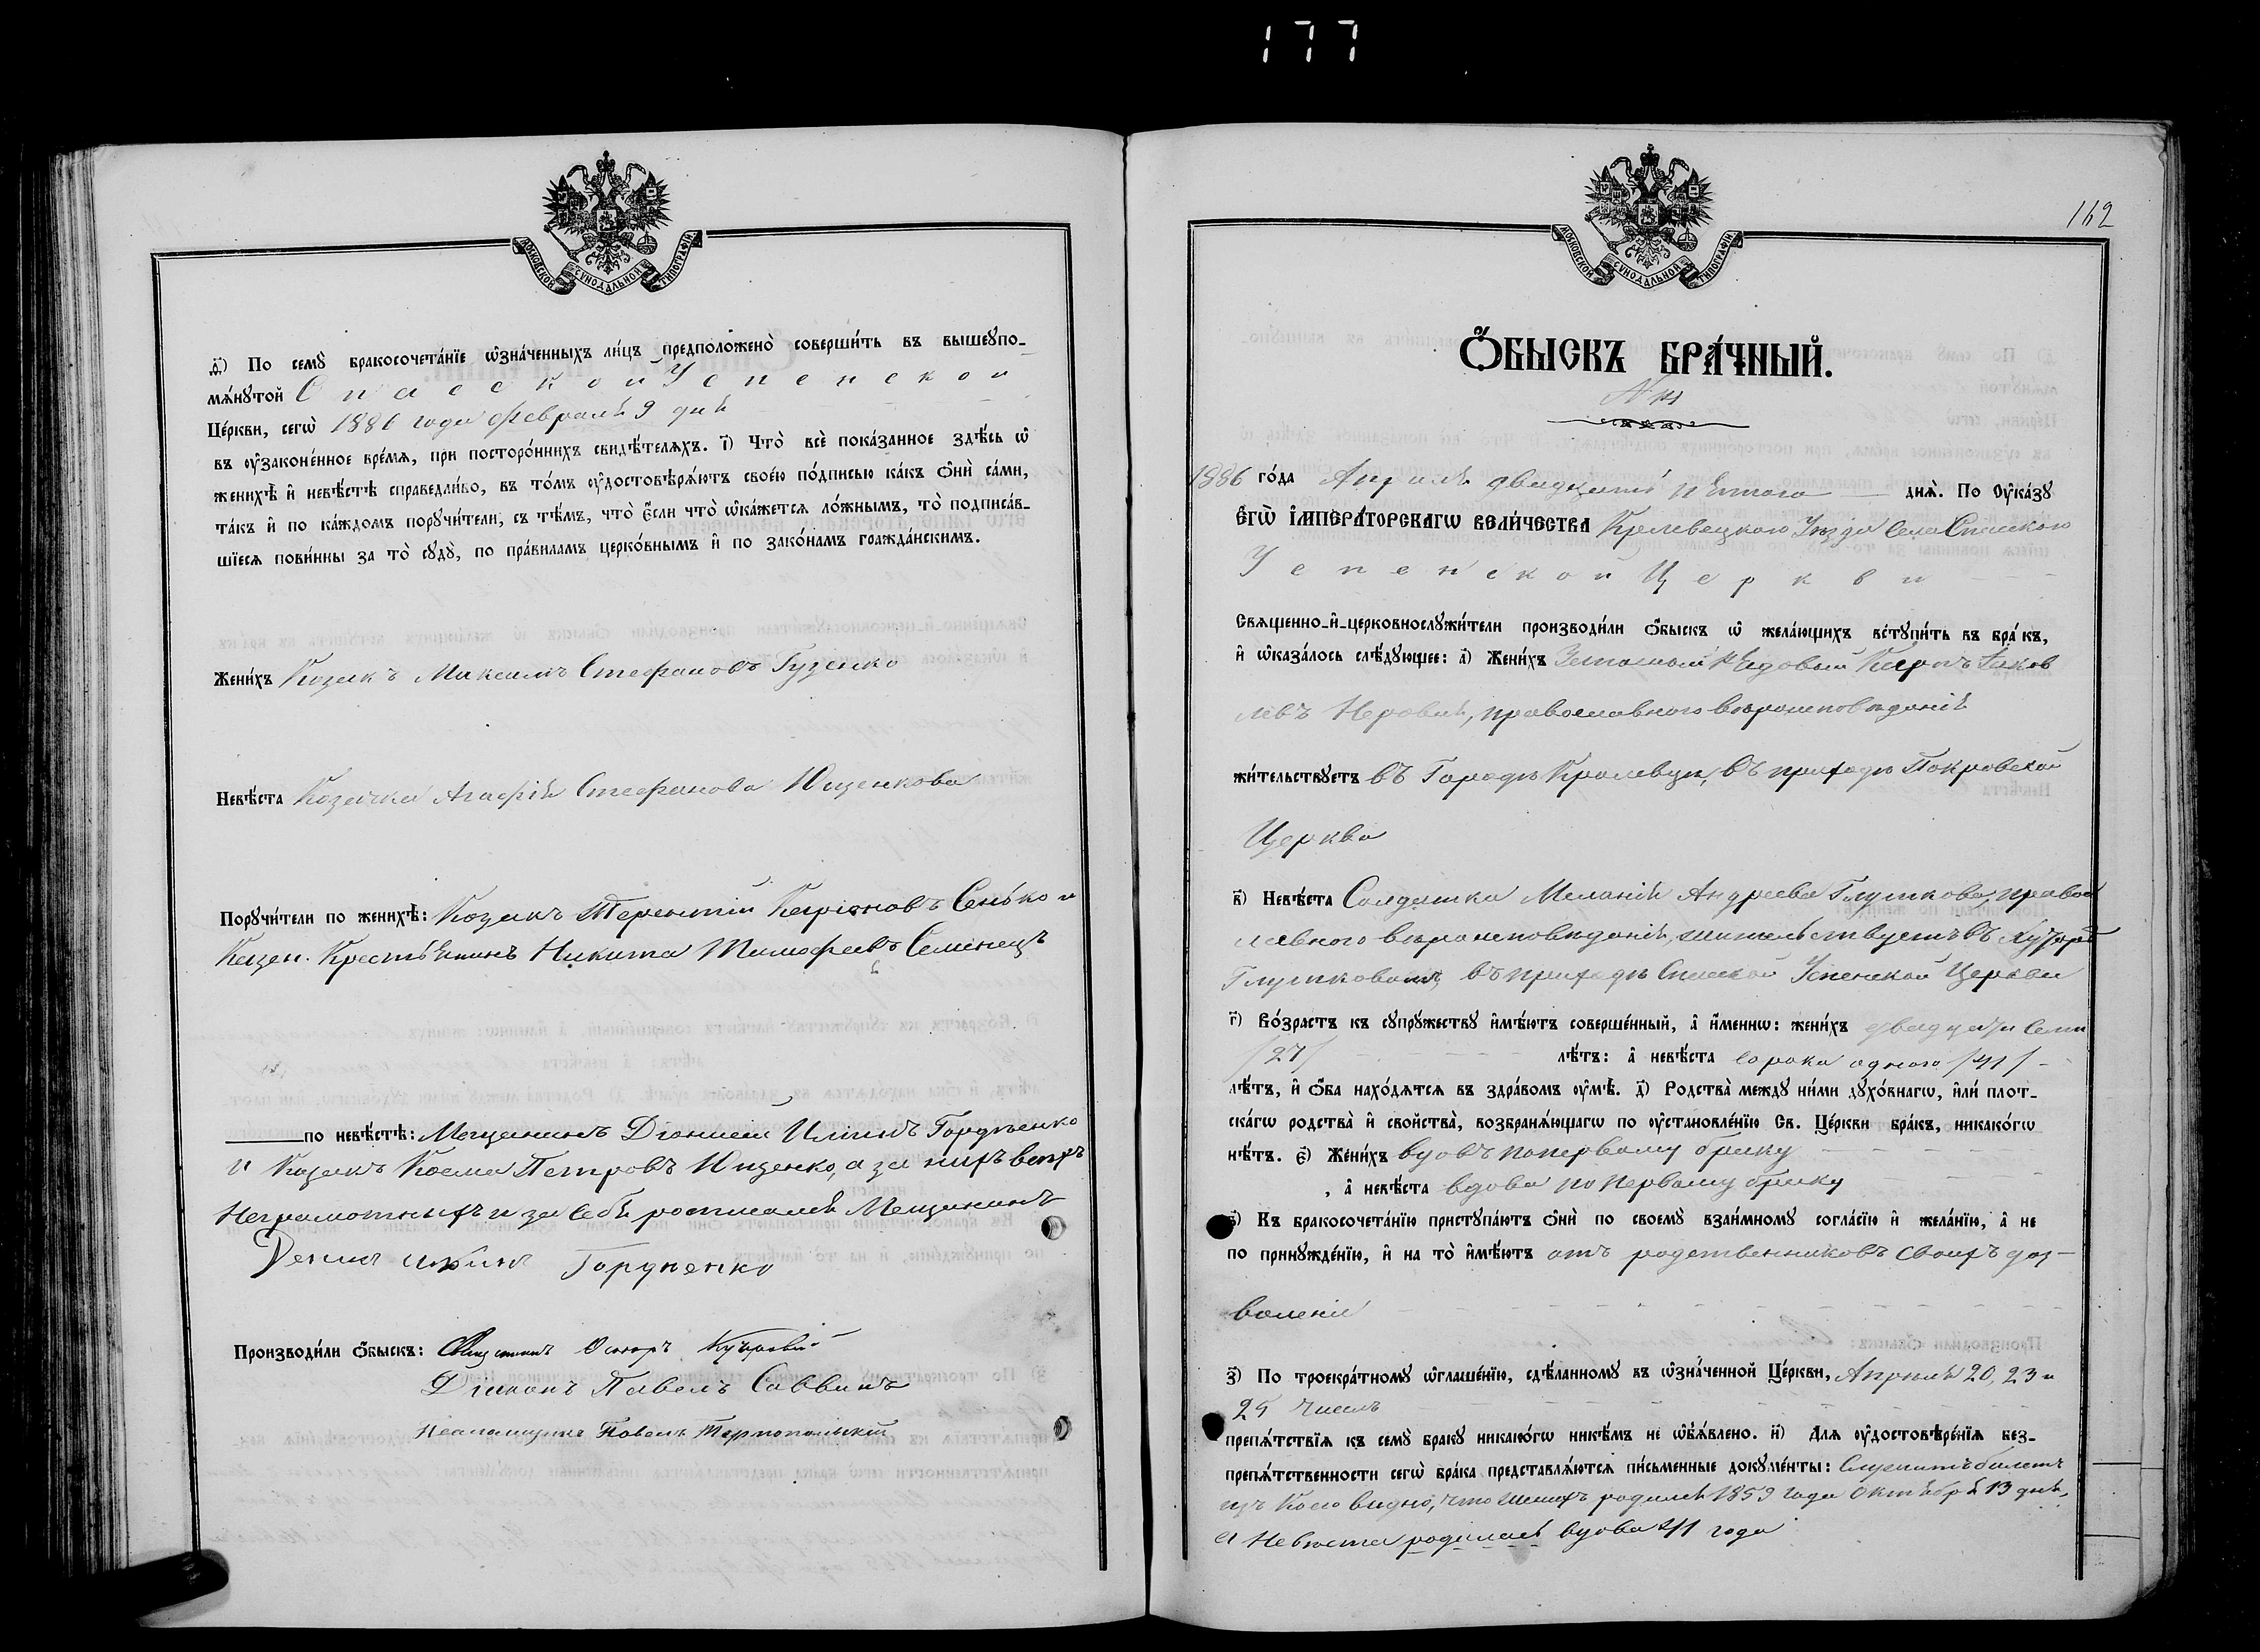 177
МОСКОВСКОЙ СУНОДАЛЬНОЙ ТИПОГРАФІИ
д҃) По семꙋ̀ бракосочета́нїе ѡ҆зна́ченныхъ ли́цъ предположено̀ соверши́ть въ вышеꙋпо-
мѧ́нꙋтой Спасской Успенской
Це́ркви, сегѡ̀ 1886 года Февраля 9 дня
въ ᲂу҆законе́нное вре́мѧ, при посторо́ннихъ свидѣ́телѧхъ. і҃) Что̀ всѐ пока́занное здѣ́сь ѡ҆
женихѣ̀ и҆ невѣ́стѣ справедли́во, въ то́мъ ᲂу҆достовѣрѧ́ютъ свое́ю по́дписью ка́къ ѻ҆нѝ са́ми,
та́къ и҆ по ка́ждомъ порꙋчи́тели, съ тѣ́мъ, что̀ є҆́сли что̀ ѡ҆ка́жетсѧ ло́жнымъ, то̀ подписа́в-
шїесѧ пови́нны за то̀ сꙋдꙋ̀, по пра́виламъ церко́внымъ и҆ по зако́намъ гражда́нскимъ.
Жени́хъ Козакъ Максимъ Стефановъ Гузенко
Невѣ́ста Козачка Агафія Стефанова Ющенкова
Порꙋчи́тели по женихѣ̀: Козакъ Терентій Сенько и
Казен. Крестьянинъ Никита Тимофеевъ Семенецъ
по невѣ́стѣ: Мещанинъ Діонисій Ильинъ Гордиенко
и Козакъ Косма Петровъ Ющенко, а за нихъ всѣхъ
Неграмотныхъ и за себя росписался Мещанинъ
Денис Горднепко
Производи́ли ѻ҆́быскъ: Священникъ
Діаконъ Павелъ Саввинъ
Псаломщикъ Павелъ Тарнопольскій
162
МОСКОВСКОЙ СУНОДАЛЬНОЙ ТИПОГРАФІИ
Ѻ҆́БЫСКЪ БРА́ЧНЫЙ.
1886 го́да Апреля двадцать пятого днѧ̀. По ᲂу҆ка́зꙋ
Є҆ГѠ̀ І҆МПЕРА́ТОРСКАГѠ ВЕЛИ́ЧЕСТВА Кролевецкого Уѣзда Села Спаского
Успенской Церкви
Свѧще́нно-и҆-церковнослꙋжи́тели производи́ли ѻ҆́быскъ ѡ҆ жела́ющихъ встꙋпи́ть въ бра́къ,
и҆ ѡ҆каза́лось слѣ́дꙋющее: а҃) Жени́хъ Запасный Рядовый Яков
левъ православного вѣроисповѣданія
жи́тельствꙋетъ въ Городѣ Кролевцѣ, въ приходѣ Покровской
Церкви
в҃) Невѣ́ста Солдатка Меланія Андреева Глушкова, право
славного вѣроисповѣданія, жительствуетъ въ Хуторѣ
Глушковомъ, въ приходѣ Спаской Успенской Церкви
г҃) Во́зрастъ къ сꙋпрꙋ́жествꙋ и҆мѣ́ютъ соверше́нный, а҆ и҆́меннѡ: жени́хъ двадцати семи
/27/ лѣ́тъ: а҆ невѣ́ста сорока одного /41/
лѣ́тъ, и҆ ѻ҆́ба нахо́дѧтсѧ въ здра́вомъ ᲂу҆мѣ̀. д҃) Родства̀ междꙋ ни́ми дꙋхо́внагѡ, и҆лѝ плот-
ска́гѡ родства̀ и҆ свойства̀, возбранѧ́ющагѡ по ᲂу҆становле́нїю Св. Це́ркви бра́къ, никако́гѡ
нѣ́тъ. є҃) Жени́хъ вдовъ по первому браку
, а҆ невѣ́ста вдова по первому браку
Къ бракосочета́нїю пристꙋпа́ютъ ѻ҆нѝ по своемꙋ̀ взаи́мномꙋ согла́сїю и҆ жела́нїю, а҆ не
по принꙋжде́нїю, и҆ на то̀ и҆мѣ́ютъ отъ родственниковъ своихъ доз-
воленіе
з҃) По троекра́тномꙋ ѡ҆глаше́нїю, сдѣ́ланномꙋ въ ѡ҆зна́ченной Це́ркви, Апреля 20, 23 и
25 числъ
препѧ́тствїѧ къ семꙋ̀ бракꙋ никако́гѡ никѣ́мъ не ѡ҆б̾ѧ́влено. и҃) Длѧ ᲂу҆достовѣре́нїѧ без-
препѧ́тственности сегѡ̀ бра́ка представлѧ́ютсѧ пи́сьменные докꙋме́нты: Служитъ билетъ
изъ коего видно, что женихъ родился 1859 года Октября 13 дня,
а Невѣста родилась вдова 41 года